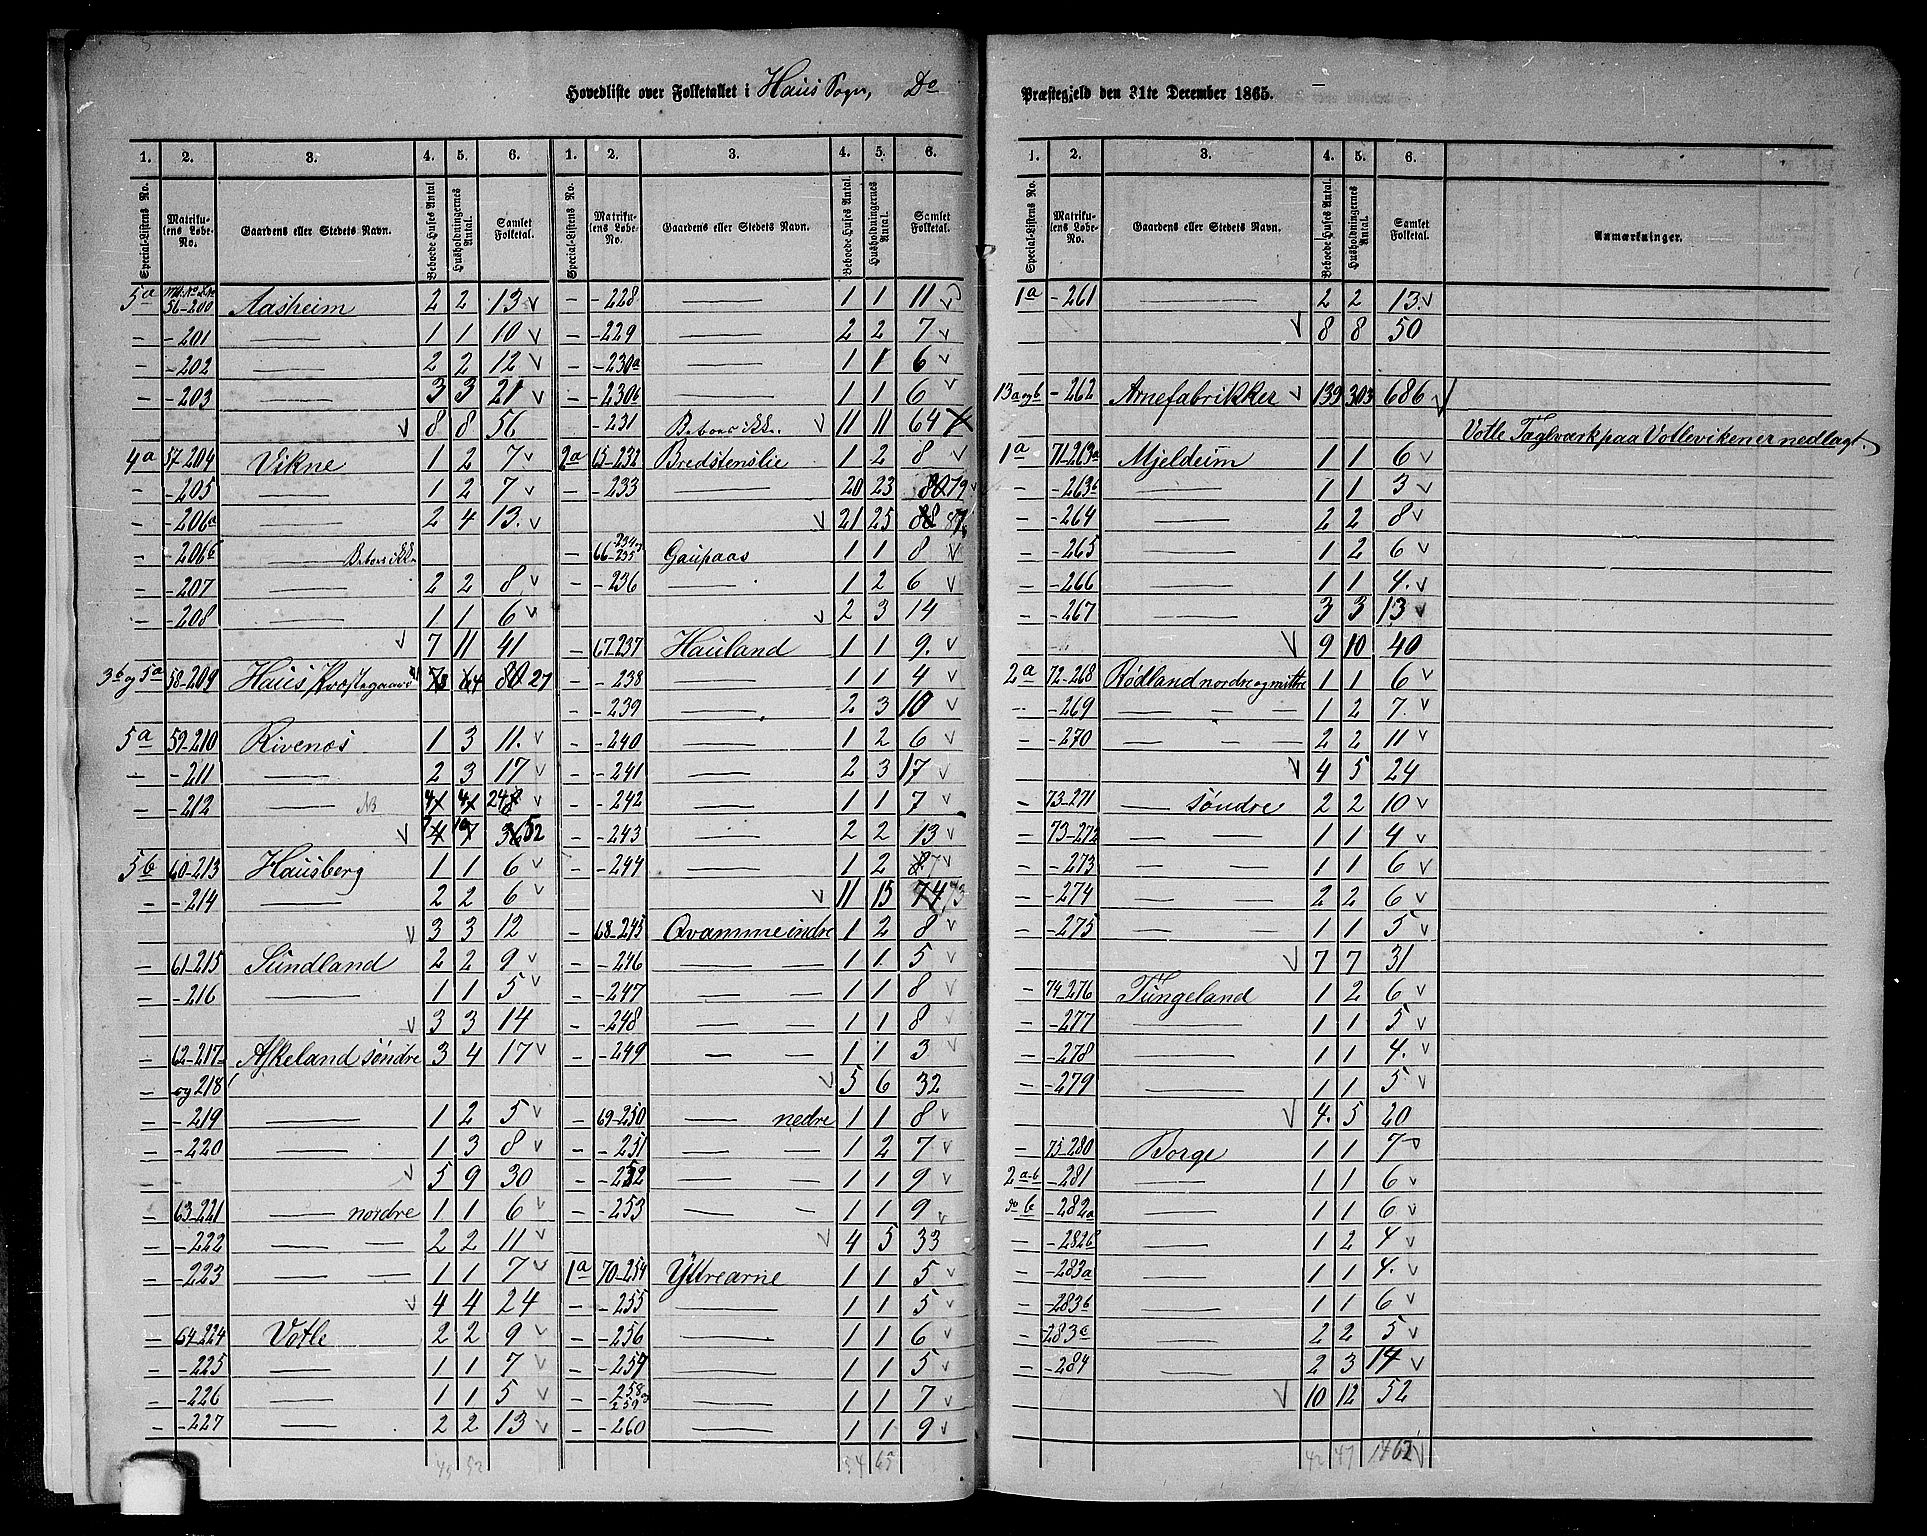 Hovedliste over Folketallet i Haus Sogn, Do Præstegjeld den 31te December 1865.
1. 2. 3. 4. 5. 6. 1. 2. 3. 4. 5. 6.
Special-Listens No. Matrikulens Løbe-No. Gaardens eller Stedets Navn. Beboede Huses Antal Husholdningernes Antal. Samlet Folketal. Special-Listens No. Matrikulens Løbe-No. Gaardens eller Stedets Navn. Beboede Huses Antal. Husholdningernes Antal. Samlet Folketal.
5a 56-200 Aasheim 2 2 13 v
- -201 — 1 1 10 v
- -202 — 2 2 12 v
- -203 — 3 3 21 v
v 8 8 56
4a 57-204 Vikne 1 2 7 v
- -205 — 1 2 7 v
- -206a — 2 4 13. v
- -206b — Beboes ikke
- -207 — 2 2 8 v
- -208 — 1 1 6 v
v 7 11 41
3b og 5a 58-209 Haus, Præstegaard 80 27
5a 59-210 Rivenæs 1 3 11. v
- -211 — 2 3 17 v
- -212 — NB 4 4 24 v
v 7 10 36 52
5b 60-213 Hausberg 1 1 6 v
- -214 — 2 2 6 v
v 3 3 12
- 61-215 Sundland 2 2 9 v
- -216 — 1 1 5 v
v 3 3 14
- 62-217 Askeland søndre 3 4 17 v
- og 218
- -219 — 1 2 5 v
- -220 — 1 3 8 v
- v 5 9 30
- 63-221 — nordre 1 1 6 v
- -222 — — 2 2 11 v
- -223 — — 1 1 7 v
v 4 4 24
- 64-224 Votle 2 2 9 v
- -225 — 1 1 7 v
- -226 — 1 1 5 v
- -227 — 2 2 13 v
- -228 — 1 1 11 v
- -229 — 2 2 7 v
- -230a — 1 1 6 v
- -230b — 1 1 6 v
-231 Beboes ikke. v 11 11 64
2a 65-232 Bredstenslie 1 2 8 v
- -233 — 20 23 80 79 v
v 21 25 88 87
- 66-234 og 235 Gaupaas 1 1 8 v
- -236 — 1 2 6 v
v 2 3 14
- 67-237 Hauland 1 1 9. v
- -238 — 1 1 4 v
- -239 — 2 3 10 v
- -240 — 1 2 6 v
- -241 — 2 3 17 v
- -242 — 1 1 7 v
- -243 — 2 2 13 v
- -244 — 1 2 8 7 v
v 11 15 74 73
- 68-245 Qvamme indre 1 2 8 v
- -246 — — 1 1 5 v
- -247 — — 1 1 8 v
- -248 — — 1 1 8 v
- -249 — — 1 1 3 v
v 5 6 32
- 69-250 — nedre 1 1 8 v
- -251 — — 1 2 7 v
- -252 — — 1 1 9 v
- -253 — — 1 1 9 v
v 4 5 33
1a 70-254 Yttrearne 1 1 5 v
- -255 — 1 1 5 v
- -256 — 1 1 6 v
- -257 — 1 1 5 v
- -258 og 259 — 1 1 7 v
- -260 — 1 1 9 v
45 52
54 65
1. 2. 3. 4. 5. 6.
Special-Listens No. Matrikulens Løbe-No. Gaardens eller Stedets Navn. Beboede Huses Antal. Husholdningernes Antal. Samlet Folketal. Anmærkninger.
1a -261 — 2 2 13. v
v 8 8 50
13a og b -262 Arnefabrikker v 139 303 686 v
Votle Taglværk paa Votleviken er nedlagt
1a 71-263a Mjeldeim 1 1 6 v
- -263b — 1 1 3 v
- -264 — 2 2 8 v
- -265 — 1 2 6 v
- -266 — 1 1 4. v
- -267 — 3 3 13 v
v 9 10 40
2a 72-268 Rødland nordre og mittre 1 1 6 v
- -269 — — 1 2 7. v
- -270 — — 2 2 11 v
v 4 5 24
- 73-271 — søndre 2 2 10 v
- 73-272 — — 1 1 4 v
- -273 — — 1 1 6 v
- -274 — — 2 2 6 v
- -275 — — 1 1 5 v
v 7 7 31
- 74-276 Tungeland 1 2 6 v
- -277 — 1 1 5 v
- -278 — 1 1 4. v
- -279 — 1 1 5 v
v 4. 5 20
- 75-280 Borge 1 1 7 v
2a-b -281 — 1 1 6 v
do b -282a — 1 1 6 v
- -282b — 1 2 4 v
- -283a — 1 1 4. v
- -283b — 1 1 6 v
- -283c — 2 2 5 v
- -284 — 2 3 14 v
v 10 12 52
42 47 1462 v